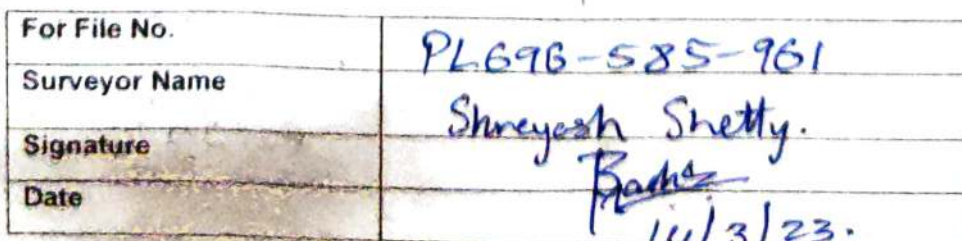 For File No. PL69B-585-961
Surveyor Name Shreyash Shetty.
Signature
Date /3/23.